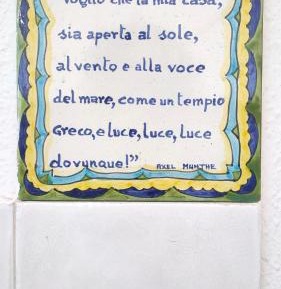 voglio che la mia casa,
sia aperta al sole,
al vento e alla voce
del mare, come un tempio
Greco, e luce, luce, luce
dovunque!” AXEL MUNTHE